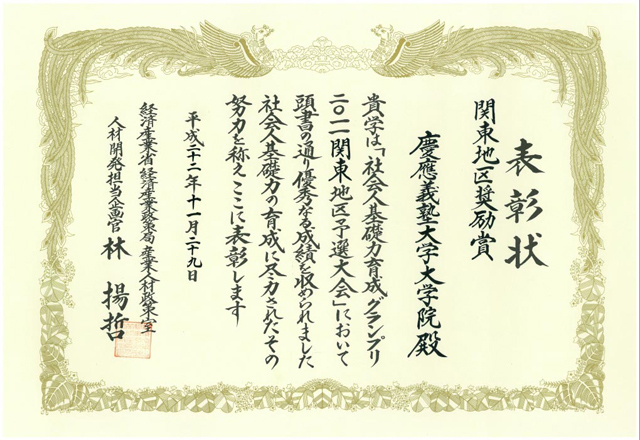 表彰状
関東地区奨励賞
慶應義塾大学大学院殿
貴学は「社会人基礎力育成グランプリ
二〇一一関東地区予選大会」において
頭書の通り優秀なる成績を収められました
社会人基礎力の育成に尽力されたその
努力を称えここに表彰します
平成二十二年十一月二十九日
経済産業省 経済産業政策局 産業人材政策室
人材開発担当企画官 林 揚哲